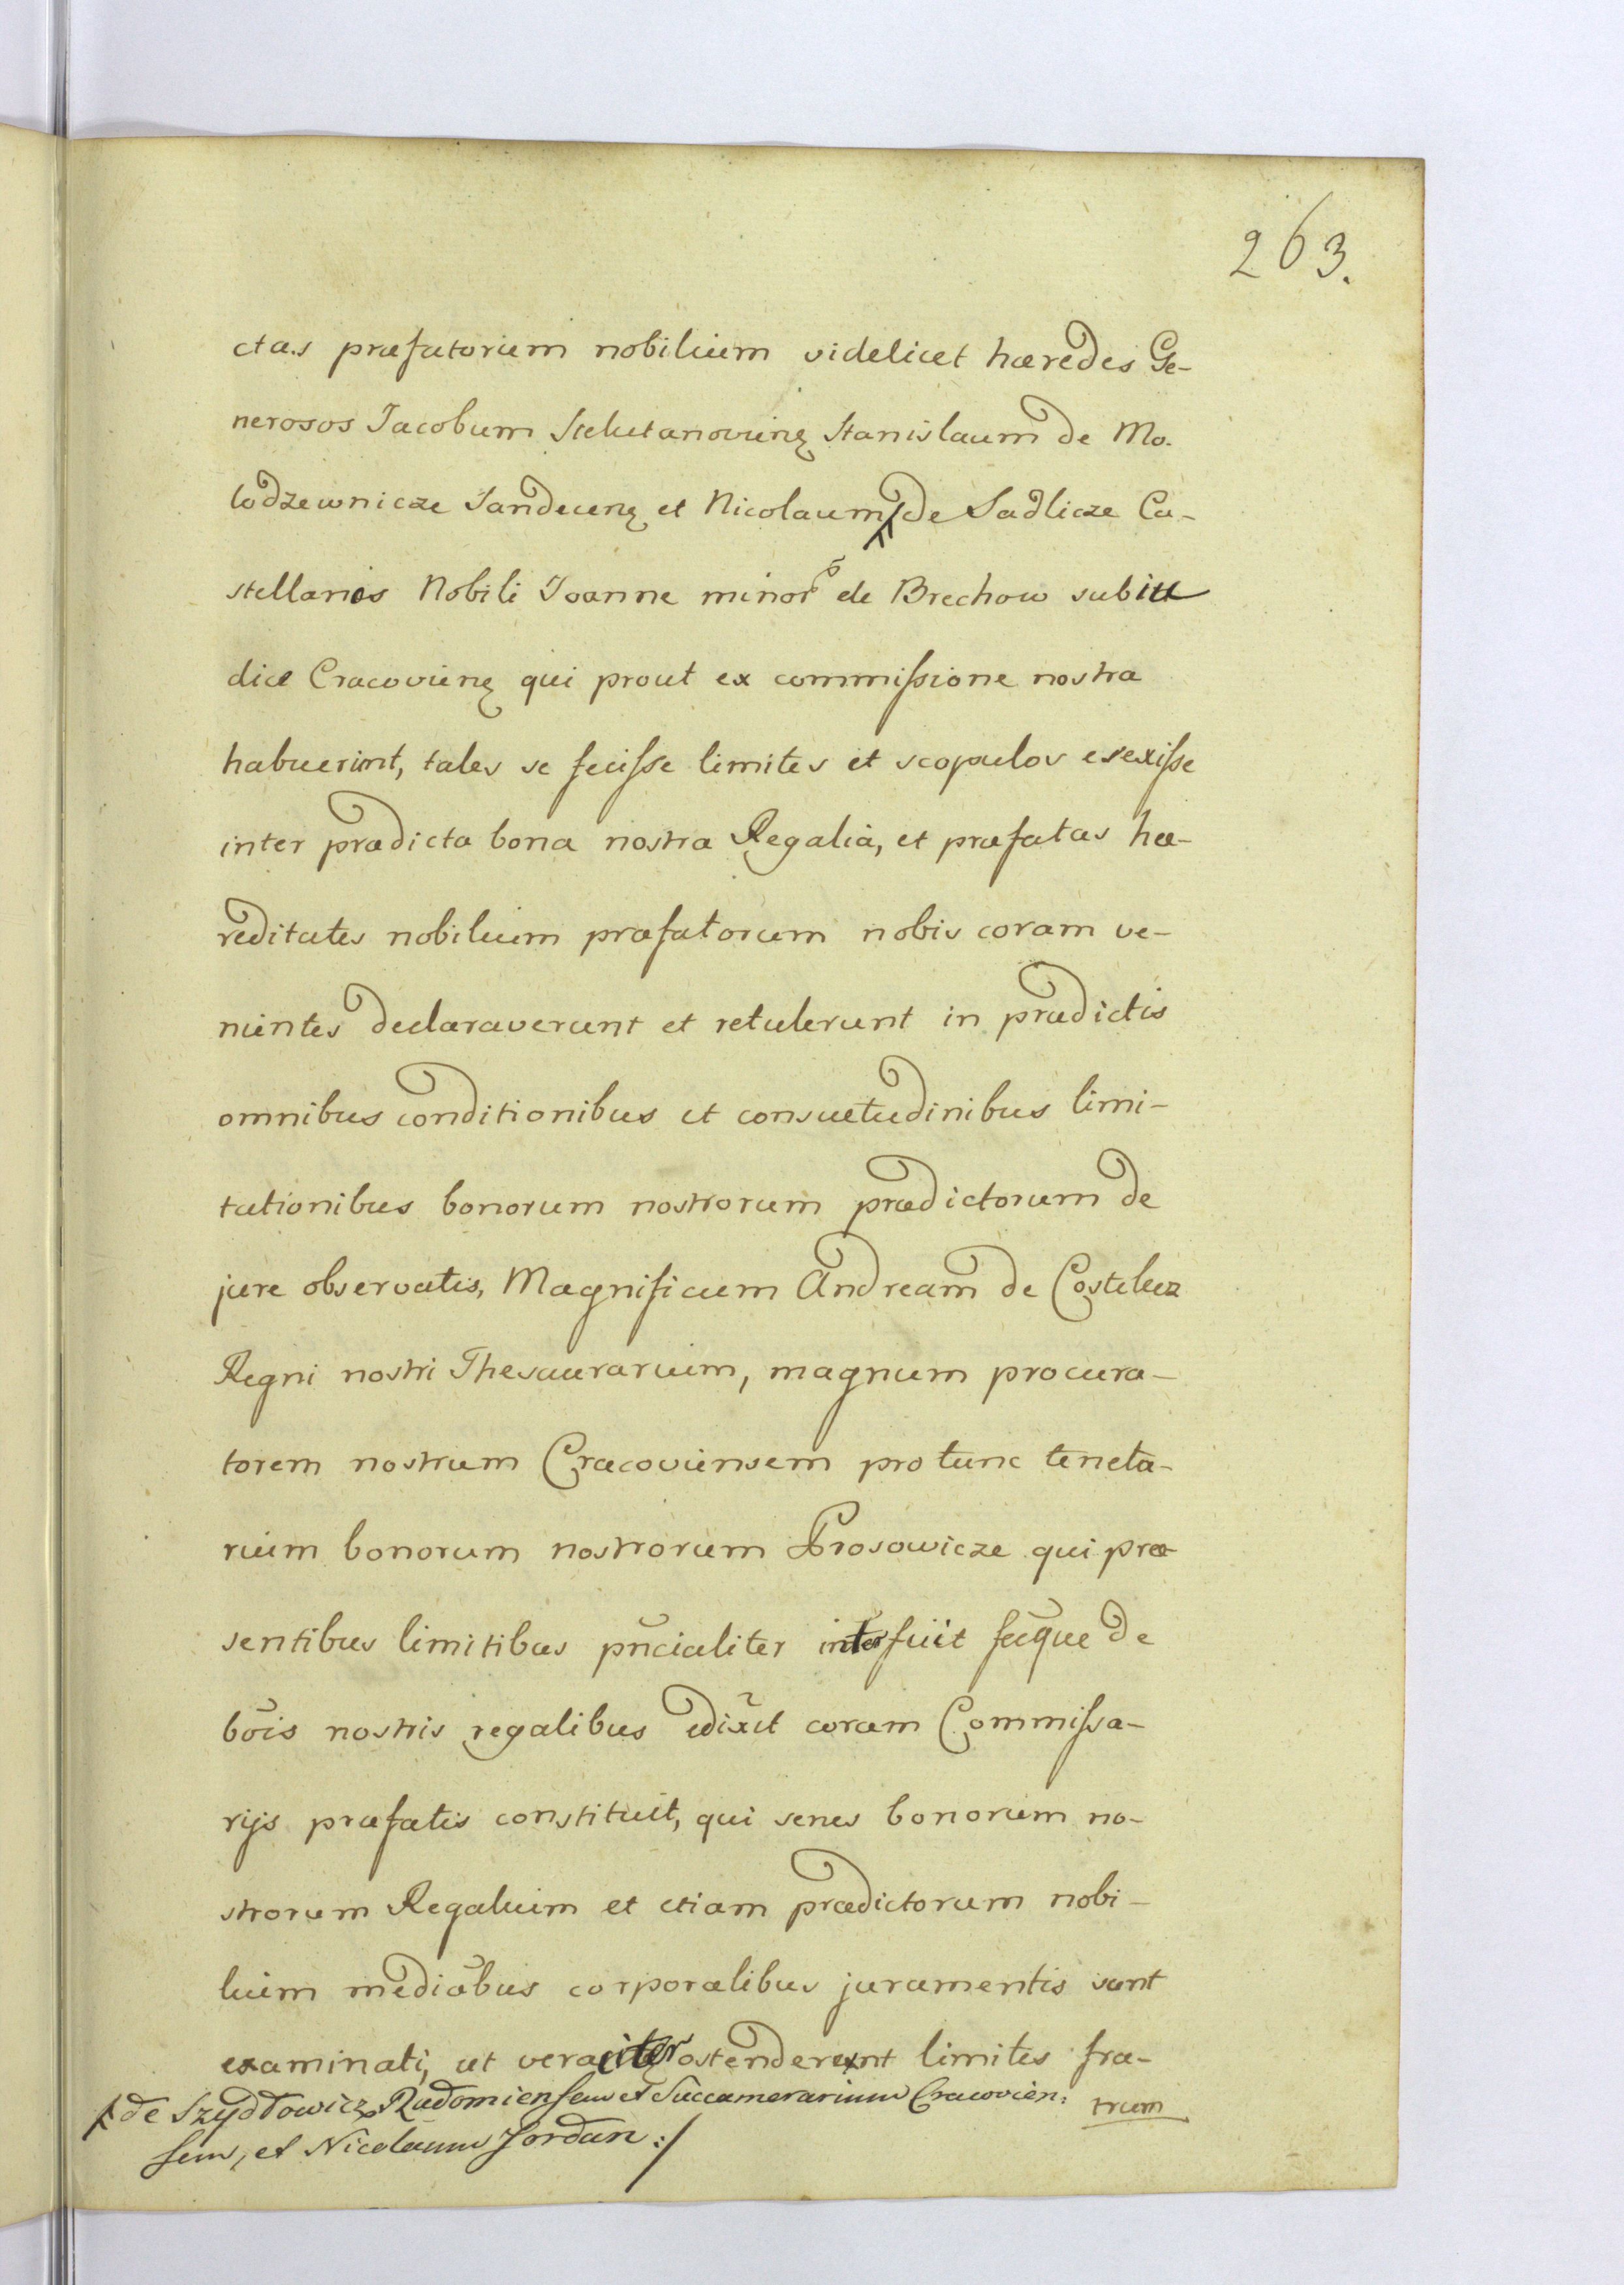 263.
ctas præfatorum nobilium videlicet hæredes Ge-
nerosos Jacobum Stelutanovieng Stanislaum de Mo.
lodzewnicze Sandeceng et Nicolaum de Sadlicze Ca-
stellanos Nobili Joanne minor de Brechow subiu
dice Cracovieng qui prout ex commissione nostra
habuerint, tales se fecisse limites et scopulos erexisse
inter prædicta bona nostra Regalia, et præfatas hæ-
reditates nobilium præfatorum nobis coram ve-
nientes declaraverunt et retulerunt in prædictis
omnibus conditionibus et consuetudinibus limi-
tationibus bonorum nostrorum prædictorum de
jure observatis, Magnificum Andream de Costelecz
Regni nostri Thesaurarium, magnum procura-
torem nostrum Cracoviensem pro tunc teneta-
rium bonorum nostrorum Prosowicze qui præ-
sentibus limitibus pñcialiter interfuit secque de
bõis nostris regalibus edixit coram Commissa-
rijs præfatis constituit, qui senes bonorum no-
strorum Regalium et etiam prædictorum nobi-
lium mediãbus corporalibus juramentis sunt
examinati, ut veraciter ostenderent limites fra-
trum
de Szydłowicz Radomiensem et Succamerarium Cracovien:
sem, et Nicolaum Jordan :/